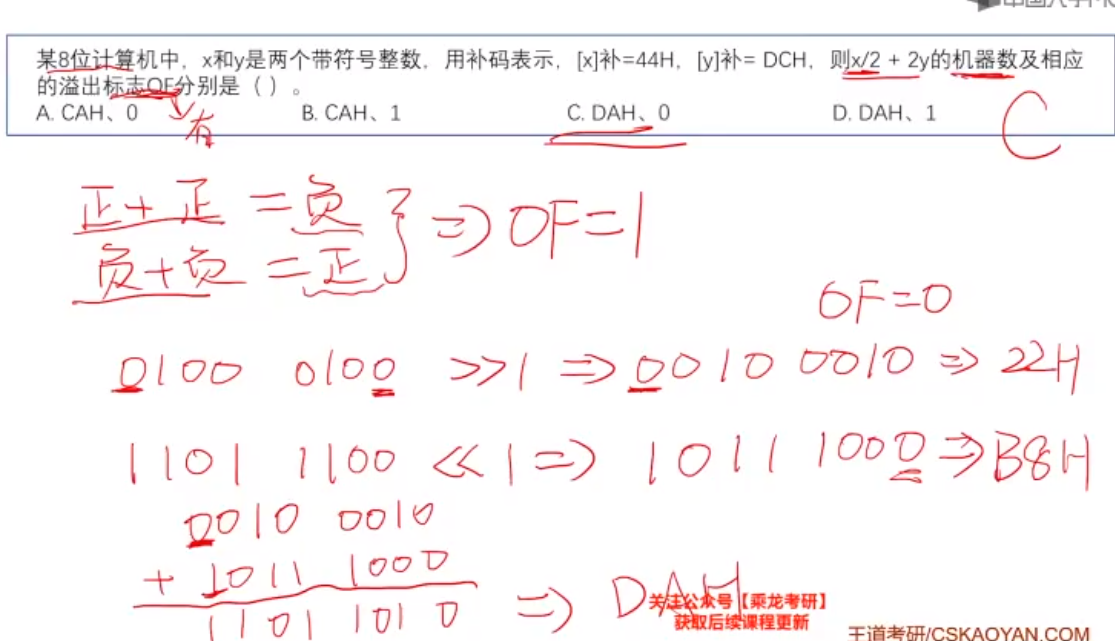 某8位计算机中，x和y是两个带符号整数，用补码表示，[x]补=44H，[y]补= DCH，则x/2 + 2y的机器数及相应
的溢出标志OF分别是（ ）。
A. CAH、0 B. CAH、1 C. DAH、0 D. DAH、1
有
C
正+正 =负
负+负 =正 } => OF=1
OF=0
0100 0100 >>1 => 0010 0010 => 22H
1101 1100 <<1 => 1011 1000 => B8H
0010 0010
+ 1011 1000
1101 1010 => DAH
关注公众号【乘龙考研】
获取后续课程更新
王道考研/CSKAOYAN.COM